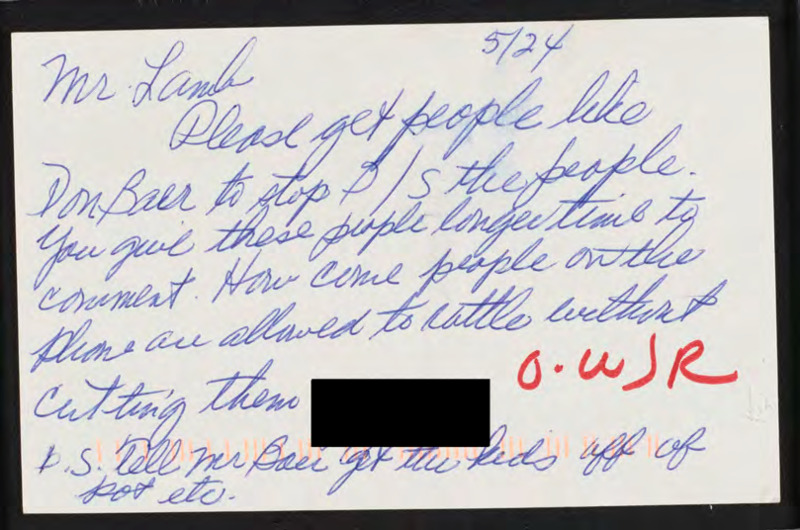 5/24
Mr. Lamb
Please get people like
Don Baer to stop B/S the people.
You give these people longer time to
comment. How come people on the
phone are allowed to rattle without
cutting them
O.WJR
P.S. Tell Mr Baer get the kids off of
pot etc.